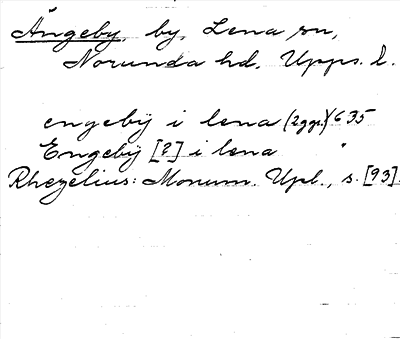 Ängeby, by, Lena sn,
Norunda hd, Upps. l.
engebÿ i lena (2ggr) 1635
Engebÿ [?] i lena "
Rhezelius: Monum. Upl., s. [93].